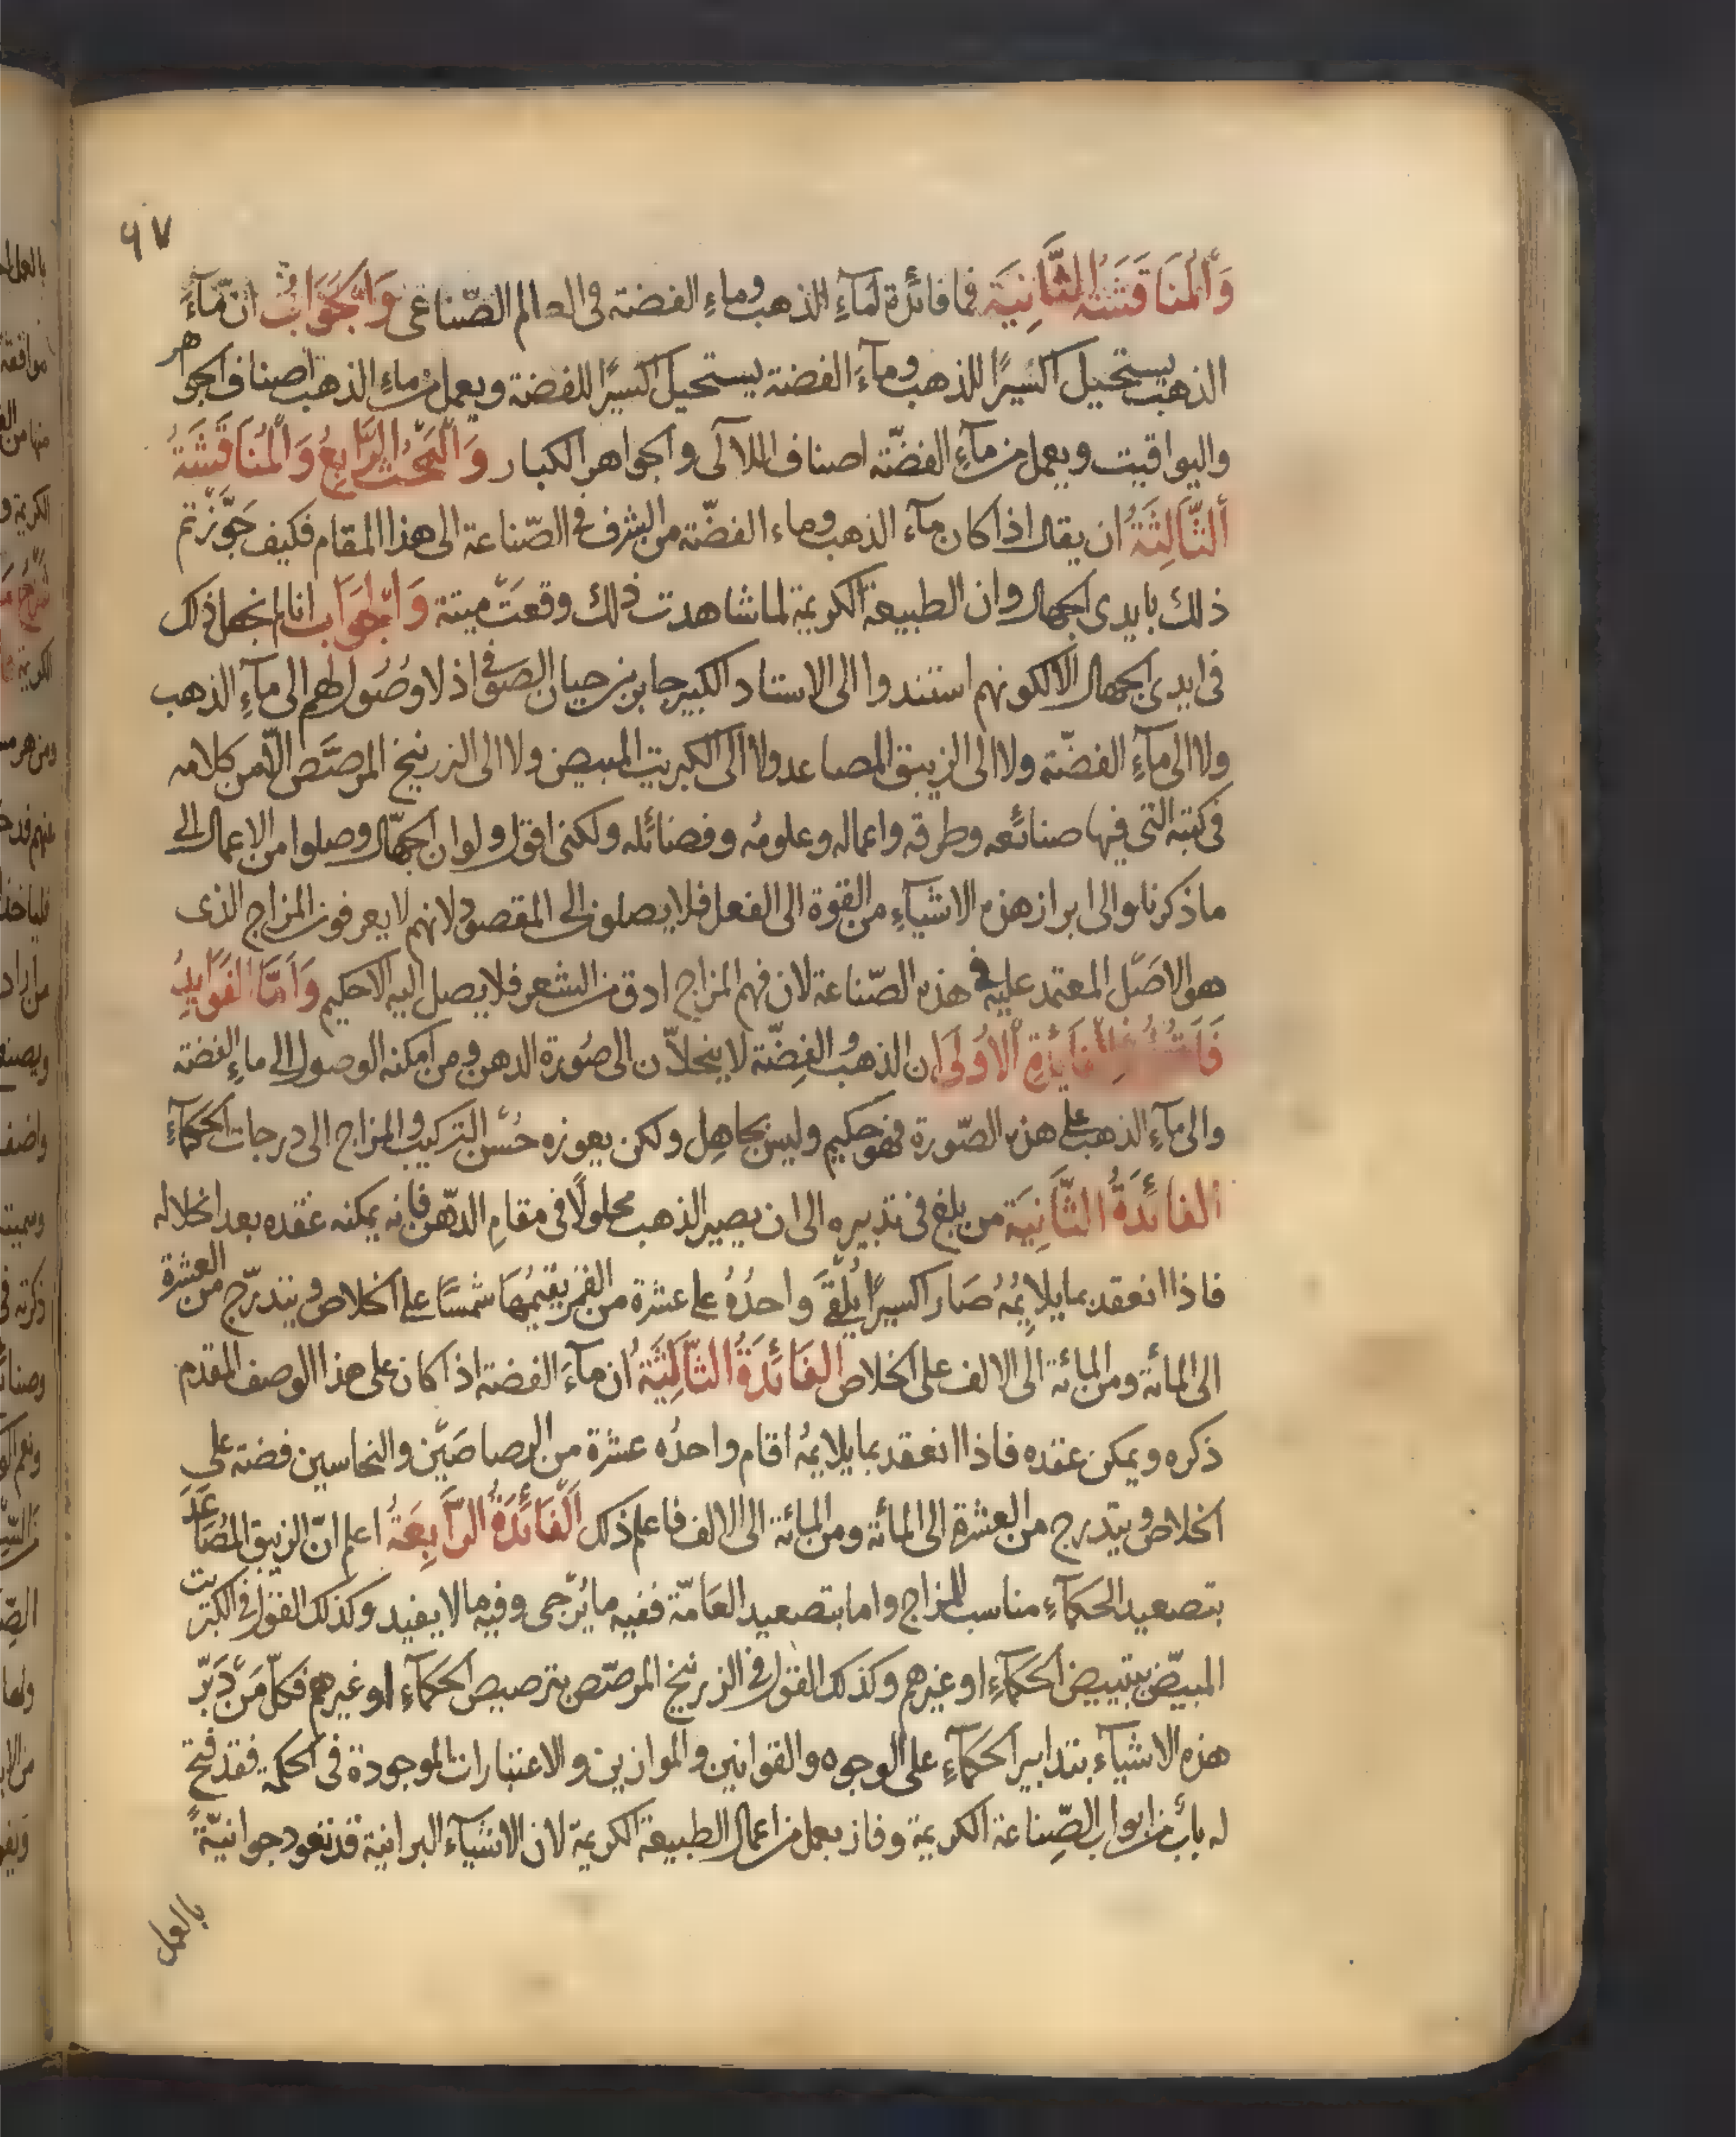 ٩٧
وَالْمُنَاقَشَةُ الثَّانِيَة فما فائدة لمآءِ الذهب وماءِ الفضة فى العالم الصّناعى وَالْجَوَابُ ان مآءَ
الذهب يستحيل اكسيرًا للذهب ومآءَ الفضة يستحيل اكسيرًا للفضة ويعمل من ماءِ الذهب اصناف الجواهر
واليواقيت ويعمل من مآءِ الفضّة اصناف اللآلى والجواهر الكبار وَالْبَحْثُ الرَّابِعُ وَالْمُنَاقَشَةُ
الثَّالِثَةُ ان يقال اذا كان مآء الذهب وماء الفضّة من الشرف فى الصّناعة الى هذا المقام فكيف جَوَّزْتم
ذلك بايدى الجهال وان الطبيعة الكريمة لما شاهدت ذلك وقعَتْ ميتة وَالْجَوَاب انا لم نجعل ذلك
فى ايدى الجهال الا لكونهم استندوا الى الاستاد الكبير جابر بن حيان الصوفى اذ لا وصُول لهم الى مآءِ الذهب
ولا الى مآءِ الفضّة ولا الى الزيبق المصاعد ولا الى الكبريت المبيض ولا الى الزرنيخ المرصّص الّا من كلامه
فى كتبه التى فيها صنائعه وطرقه واعماله وعلومُه وفضائله ولكنى اقول ولو ان الجهّال وصلوا من الاعمال الى
ما ذكرنا والى ابراز هذه الاشياءِ من القوة الى الفعل فلا يصلون الى المقصود لانهم لا يعرفون المزاج الذى
هو الاصْل المعتمد عليه فى هذه الصّناعة لان فهم المزاج ادق من الشعر فلا يصل اليه الا حكيم وَاَمَّا الفَوَايِدُ
الْفَائِدَةِ الْاُولَى ان الذهب والفِضّة لا ينحلّان الى صُورة الدهن ومن امكنه الوصول الى ماءِ الفضة
والى مآءِ الذهب على هذه الصّورة فهو حكيم وليس بجاهِل ولكن يعوزه حُسْن التركيب والمزاج الى درجات الحكمآءِ
الفائدَةُ الثَّانِيَة من بلغ فى تدبيره الى ان يصير الذهب محلولًا فى مقامِ الدّهن فانه يمكنه عقده بعد انحلاله
فاذا انعقد بما يلايِمُهُ صَار اكسيرًا يُلْقَى واحدُهُ على عشرة من القمر يقيمُهَا شمسًا على الخلاص ويتدرّج من العشرة
الى المائة ومن المائة الى الالف على الخلاص الفَائِدَةُ الثَّالِثَةُ ان مآءَ الفضة اذا كان على هذا الوصف المقدم
ذكره ويمكن عقده فاذا انعقد بما يلايمُهُ اقام واحدُه عشرة من الرصاصَيْن والنحاسين فضة على
الخلاص ويتدرج من العشرة الى المائة ومن المائة الى الالف فاعلم ذلك اَلْفَائِدَةُ الرَّابِعَةُ اعلم انّ الزيبق المُصَاعَدَ
بتصعيد الحكمآءِ مناسب للمزاج واما بتصعيد العَامّة ففيه ما يُرْجى وفيه ما لا يفيد وكذلك القول فى الكبريت
المبيّض بتبييض الحكمآءِ او غيرهم وكذلك القول فى الزرنيخ المرصّص بترصيص الحكمآءِ او غيرهم فكلّ مَنْ دَبّر
هذه الاشيآء بتدابير الحكمآءِ على الوجوه والقوانين والموازين والاعتبارات الموجودة فى الحكمة فقد فتح
له بابٌ من ابواب الصِّناعة الكريمة وفاز بعمل من اعمال الطبيعة الكريمة لان الاشيآء البرانية قد تعود جوانيّةً
بالعمل